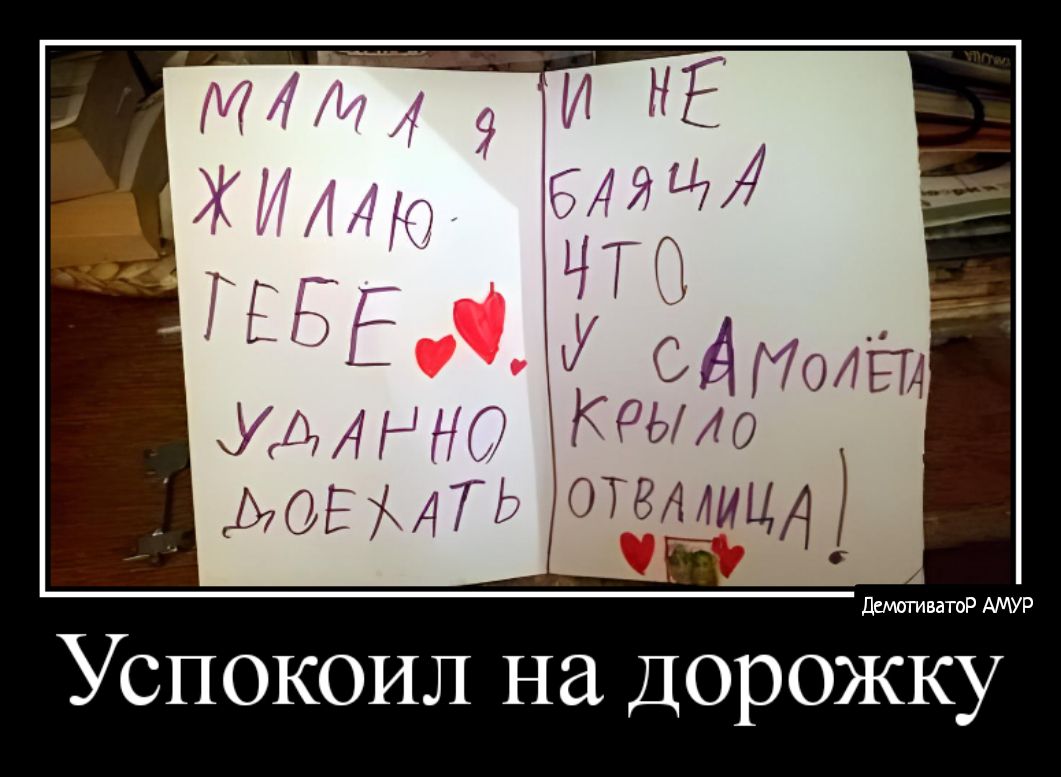 МАМА Я
ЖИЛАЮ
ТЕБЕ
УДАЧНО
ДОЕХАТЬ
И НЕ
БАЯЦА
ЧТО
У САМОЛЁТА
КРЫЛО
ОТВАЛИЦА!
ДемотиватоР АМУР
Успокоил на дорожку